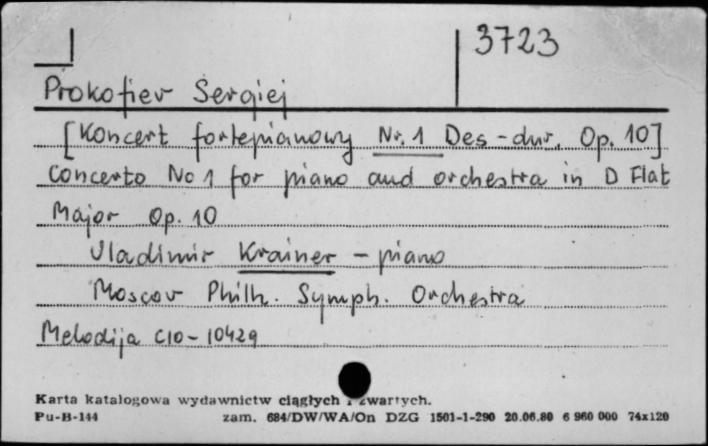 3723
Prokofiev Sergiej
[Koncert fortepianowy Nr. 1 Des-dur, Op. 10]
Concerto No 1 for piano and orchestra in D Flat
Major Op. 10
Vladimir Krainer - piano
Moscov Philh. Symph. Orchestra
Melodija C10-10429
Karta katalogowa wydawnictw ciągłych i zwartych.
Pu-B-144 zam. 684/DW/WA/On DZG 1501-1-290 20.06.80 6 960 000 74x120